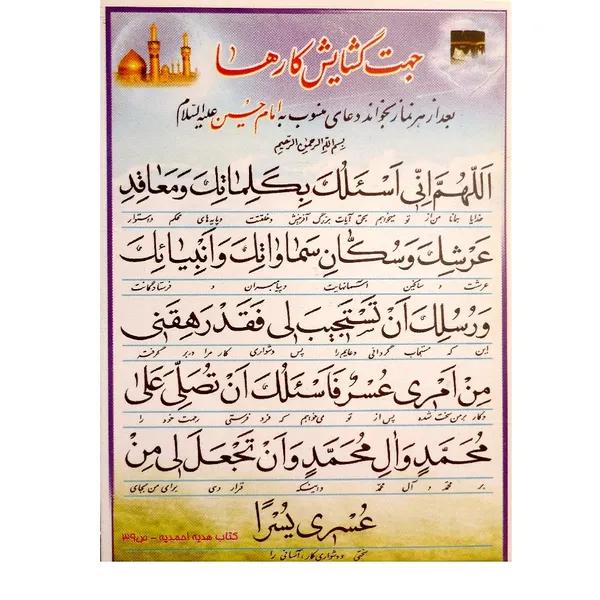 جهت گشایش کارها
بعد از هر نماز بخواند دعای منسوب به امام حسین علیه السلام
بسم الله الرحمن الرحیم
اَللّهُمَّ اِنّی اَسْئَلُكَ بِكَلِماتِكَ وَ مَعاقِدِ
خدایا همانا من از تو میخواهم بحق آیات بزرگ آفرینش و خلقتت و پایه‌های محکم و استوار
عَرْشِكَ وَ سُكّانِ سَماواتِكَ وَ اَنْبِیائِكَ
عرشت و ساکنین آسمانهایت و پیامبران و فرستادگانت
وَ رُسُلِكَ اَنْ تَسْتَجیبَ لی فَقَدْ رَهِقَنی
این که مستجاب گردانی دعایم را پس دشواری کار مرا در بر گرفته
مِنْ اَمْری عُسْرٌ فَاَسْئَلُكَ اَنْ تُصَلِّیَ عَلی
و کار بر من سخت شده پس از تو می‌خواهم که فرو فرستی رحمت خود را
مُحَمَّدٍ وَ الِ مُحَمَّدٍ وَ اَنْ تَجْعَلَ لی مِنْ
بر محمد و آل محمد و اینکه قرار دهی برای من بجای
عُسْری یُسْرًا
سختی و دشواری کار، آسانی را
کتاب هدیه احمدیه - ص۳۹